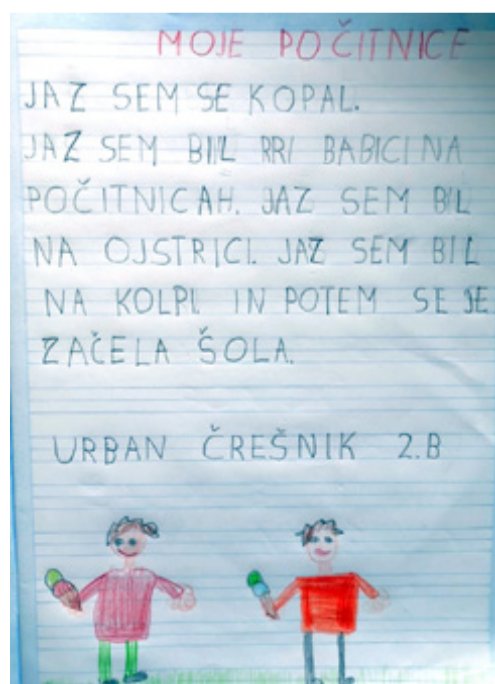 MOJE POČITNICE
JAZ SEM SE KOPAL.
JAZ SEM BIL RRI BABICI NA
POČITNICAH. JAZ SEM BIL
NA OJSTRICI. JAZ SEM BIL
NA KOLPI. IN POTEM SE JE
ZAČELA ŠOLA.
URBAN ČREŠNIK 2.B